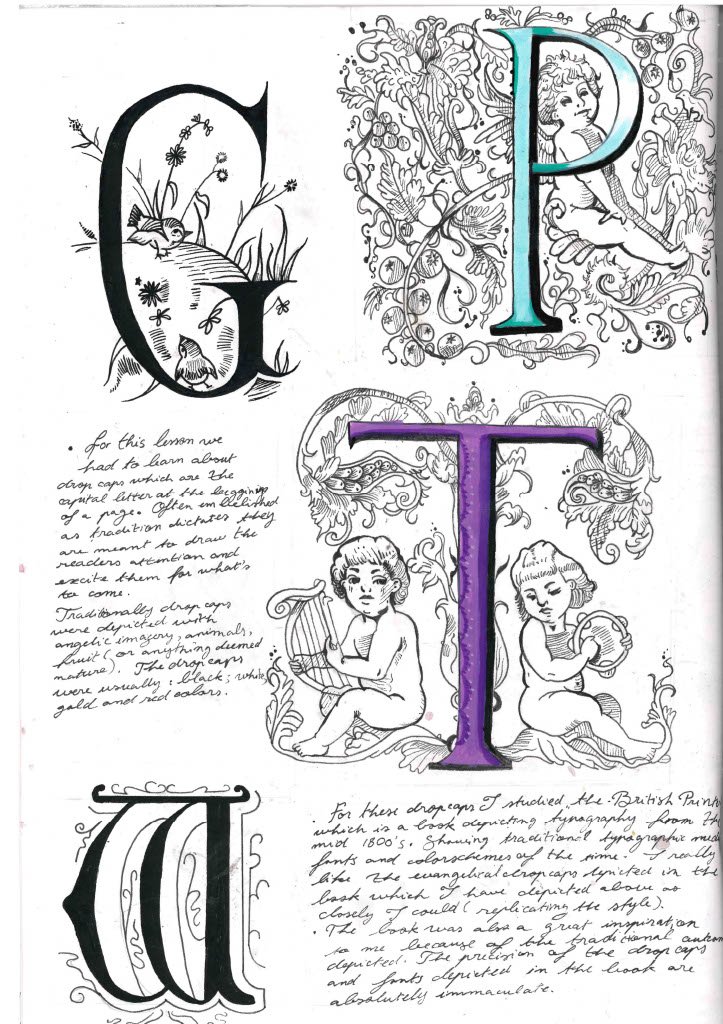 G
P
• For this lesson we
had to learn about
drop caps which are the
capital letter at the beggining
of a page. Often embelished
as tradition dictates they
are meant to draw the
readers attention and
excite them for what's
to come.
Traditionally drop caps
were depicted with
angelic imagery, animals,
fruit (or anything deemed
nature). The dropcaps
were usually: black; white,
gold and red colors.
T
• For these dropcaps I studied the British Printe
which is a book depicting typography from the
mid 1800's. Showing traditional typographic
fonts and colorschemes of the time. I really
like the evangelical dropcaps depicted in the
book which I have depicted above as
closely I could (replicating the style).
• The book was also a great inspiration
to me because of the traditional
depicted. The precision of the drop caps
and fonts depicted in the book are
absolutely immaculate.